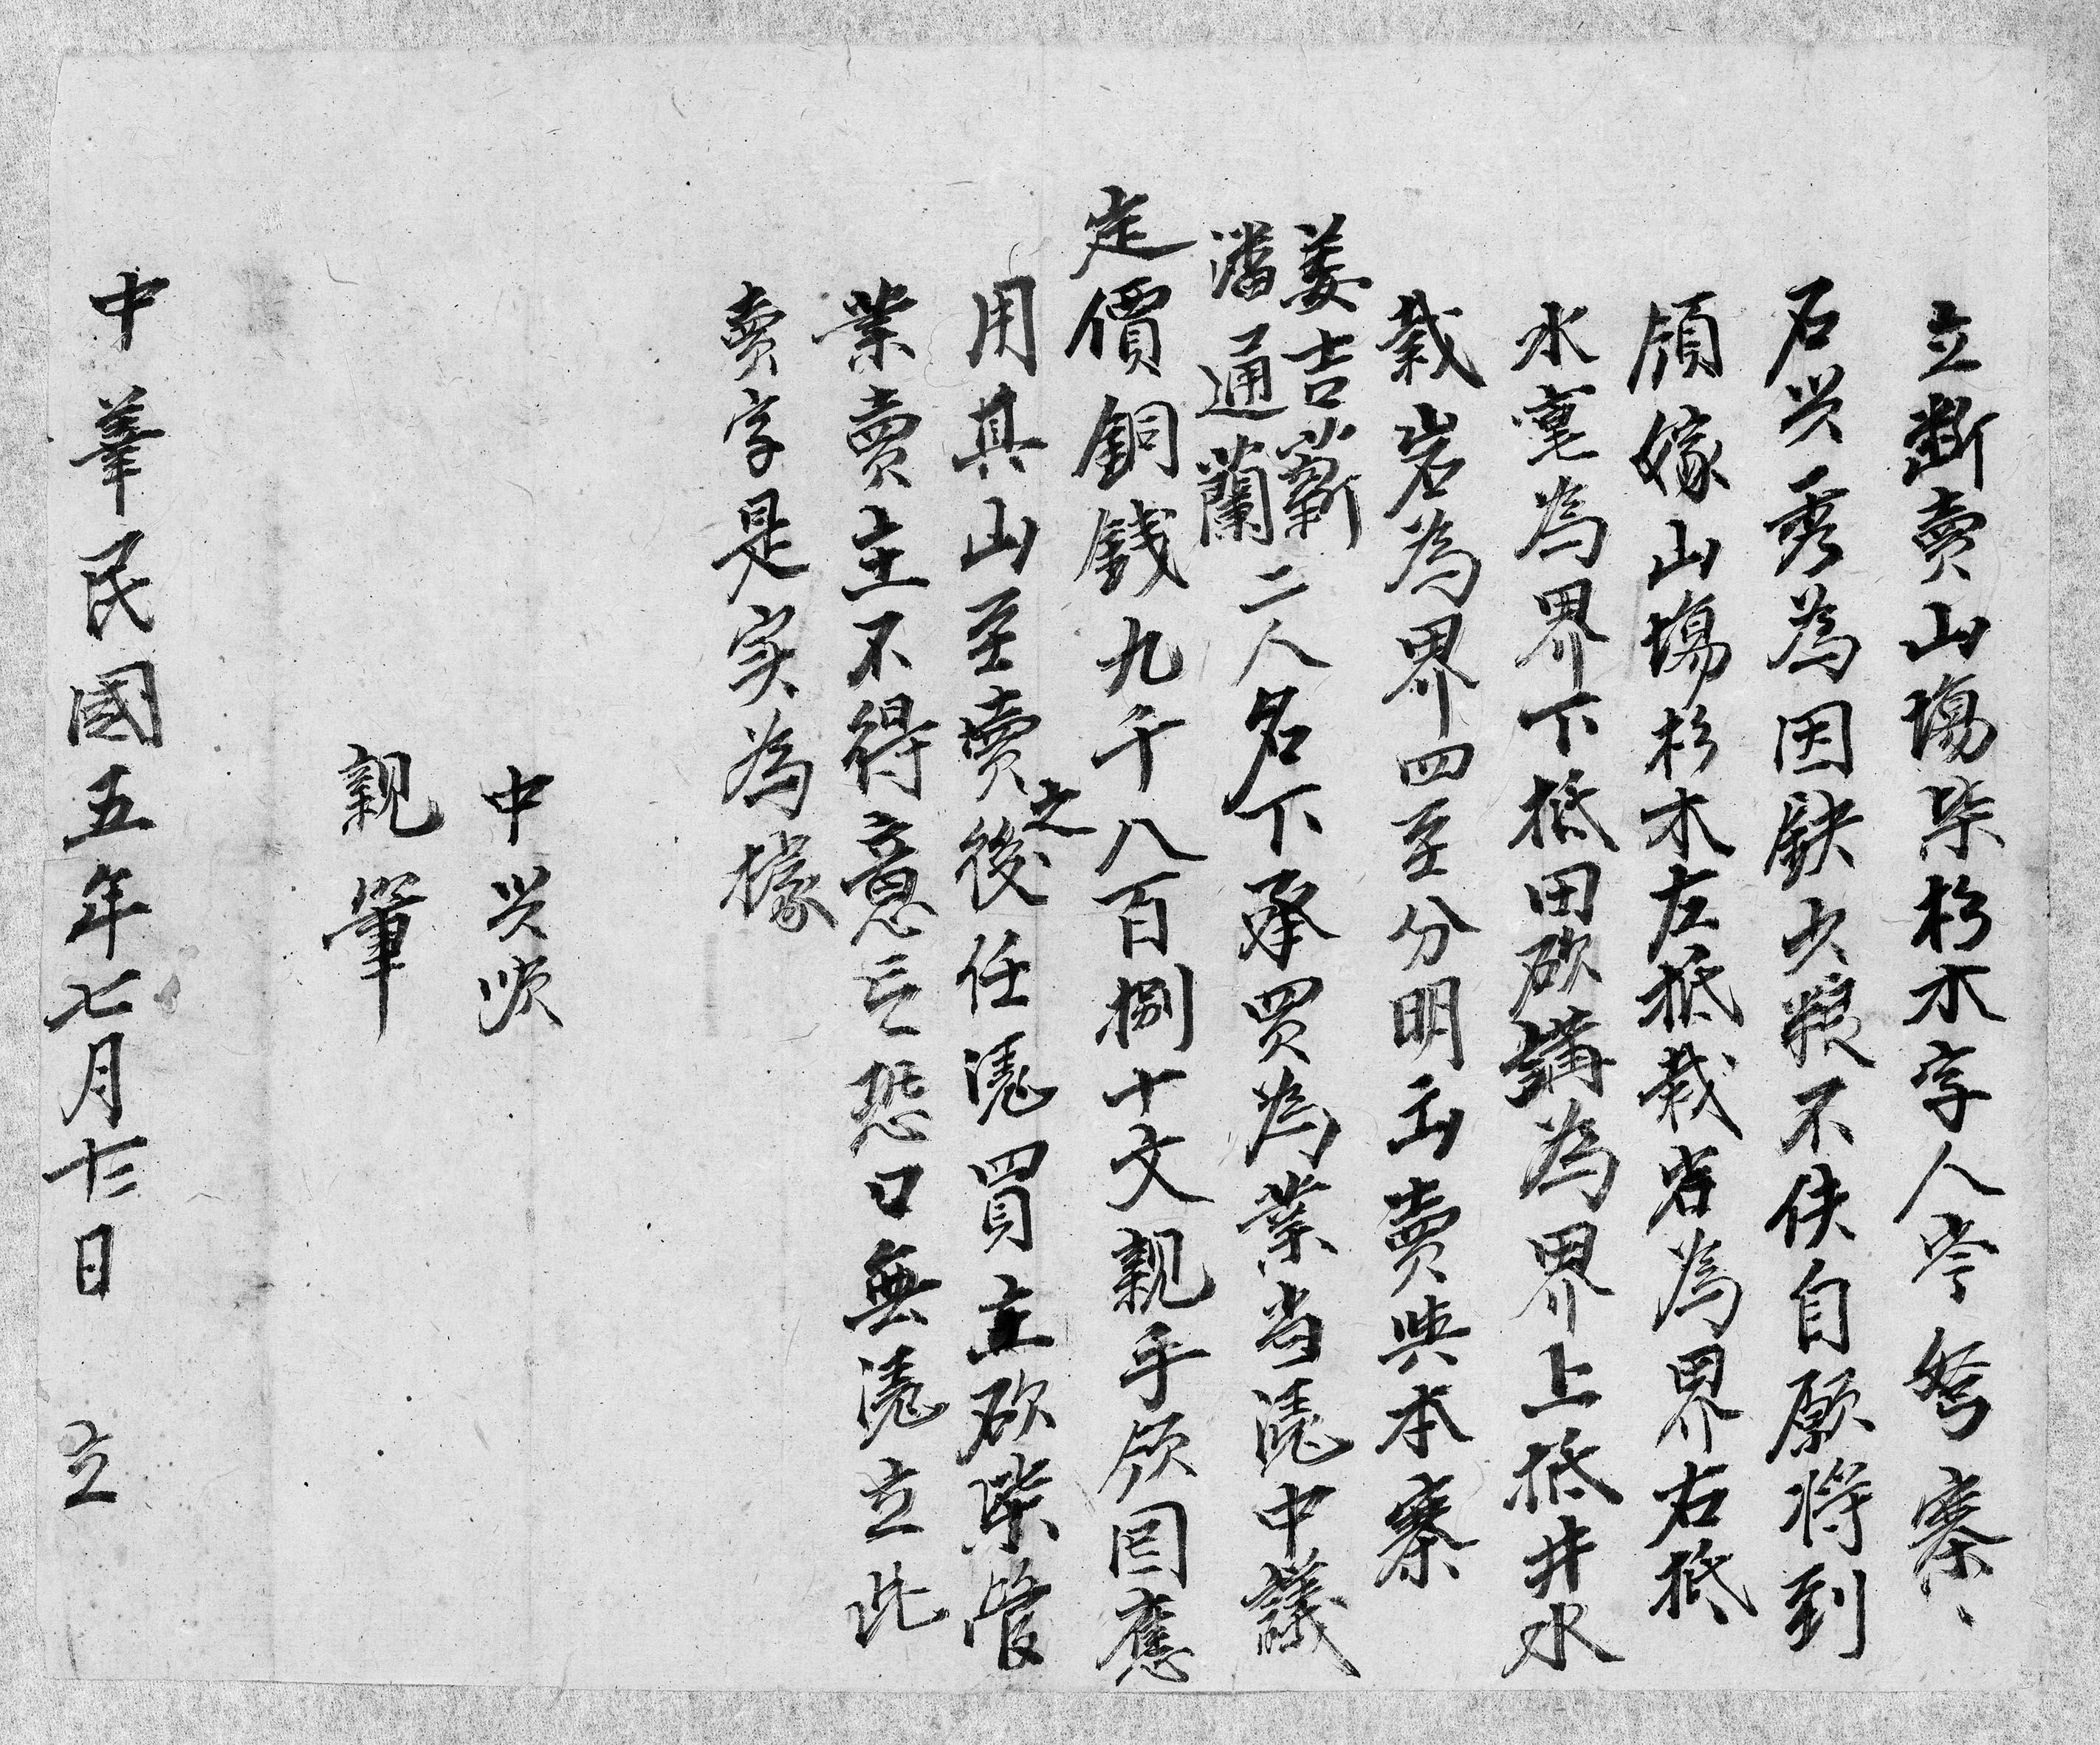 立斷賣山塲柴杉木字人岑努寨
石兴秀為因缺少粮不佚自愿将到
領嫁山塲杉木左抵栽岩為界右抵
水毫為界下抵田砍講為界上抵井水
栽岩為界四至分明出賣與本寨
姜吉嶄
潘通蘭二人名下承買為業当凴中議
定價銅錢九千八百捌十文親手領囬應
用其山至賣之後任凴買主砍柴管
業賣主不得意言恐口無凴立此
賣字是实為據
中兴順
親筆
中華民國五年七月十三日 立